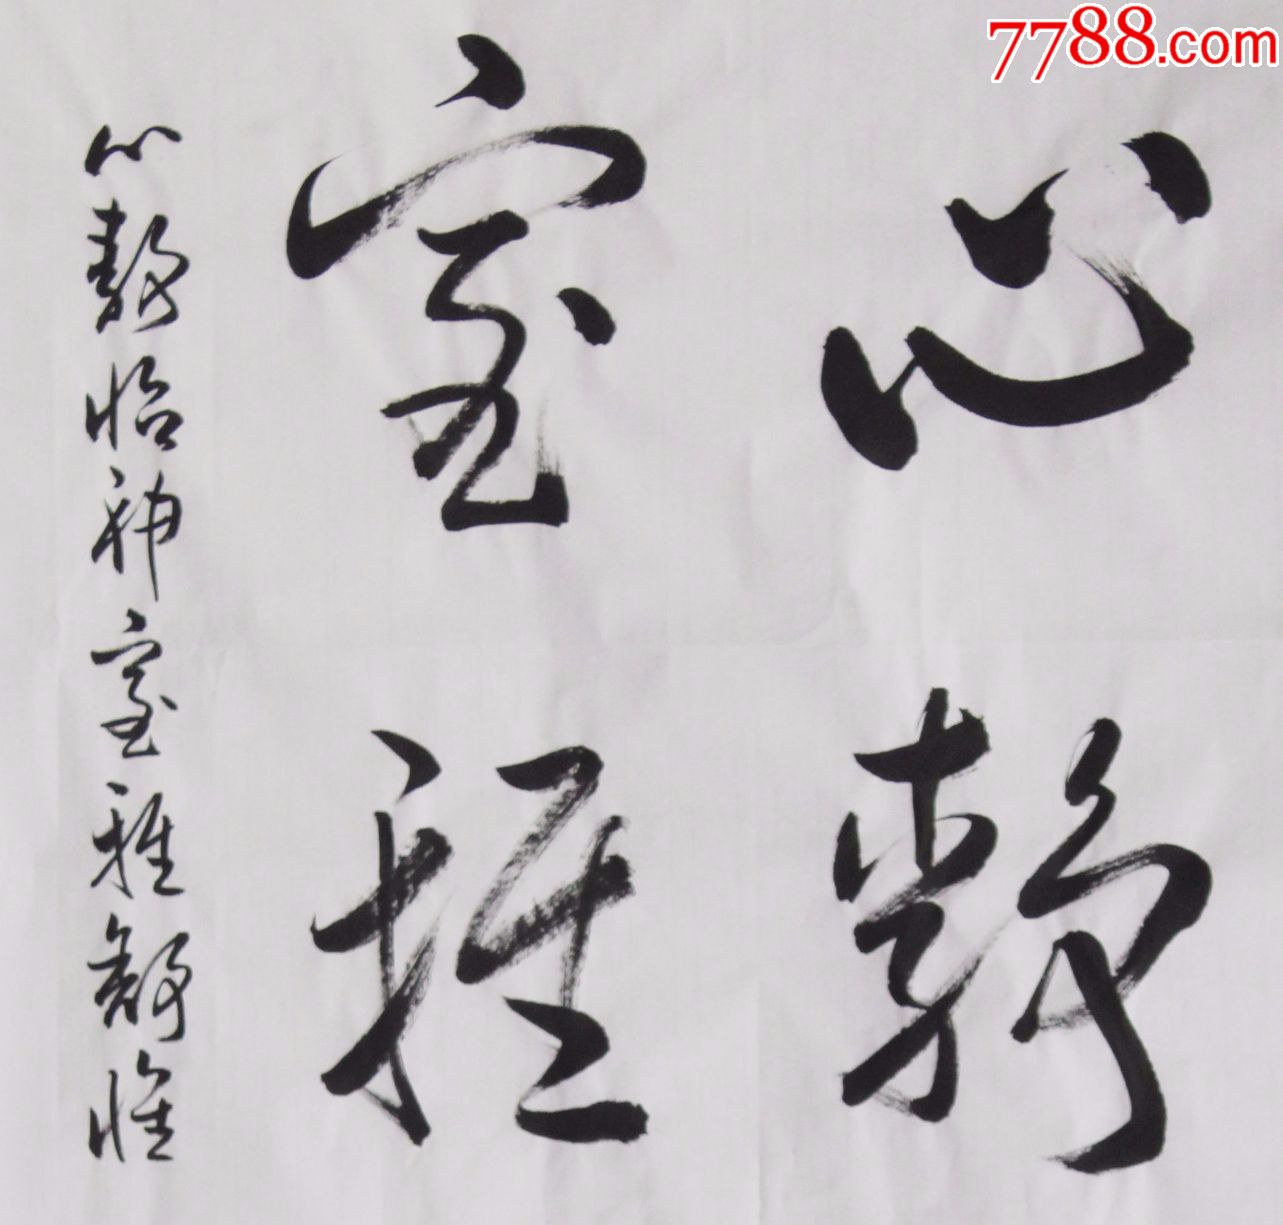 7788.com
心静
室雅
心静怡神室雅舒怀